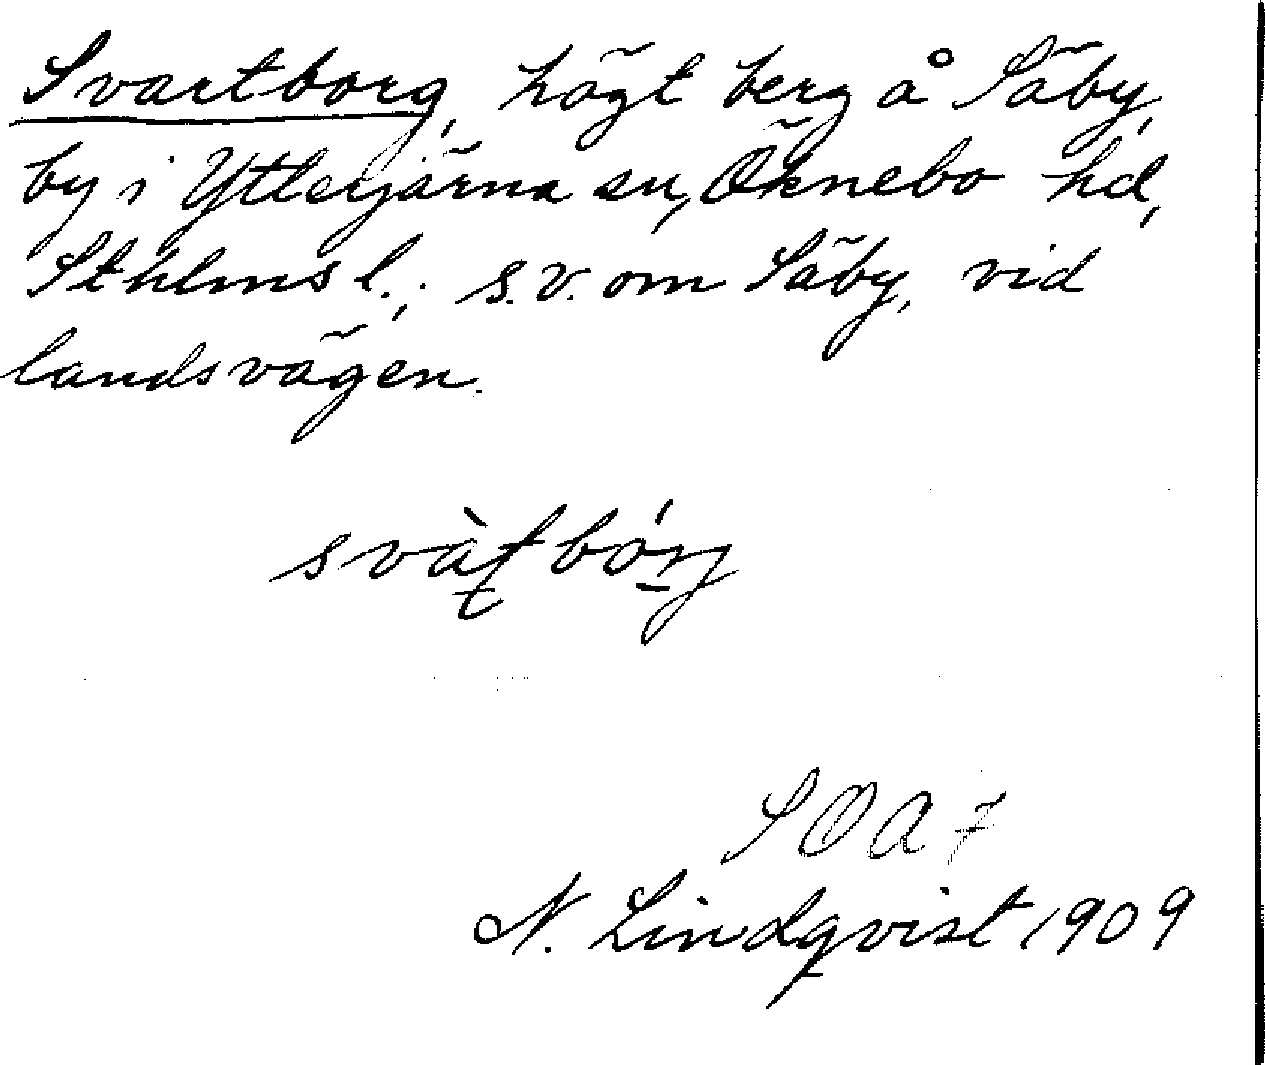 Svartborg, högt berg å Säby,
by i Ytterjärna sn, Öknebo hd,
Sthlms l.; s.v. om Säby, vid
landsvägen.
SOA 7
N. Lindqvist 1909